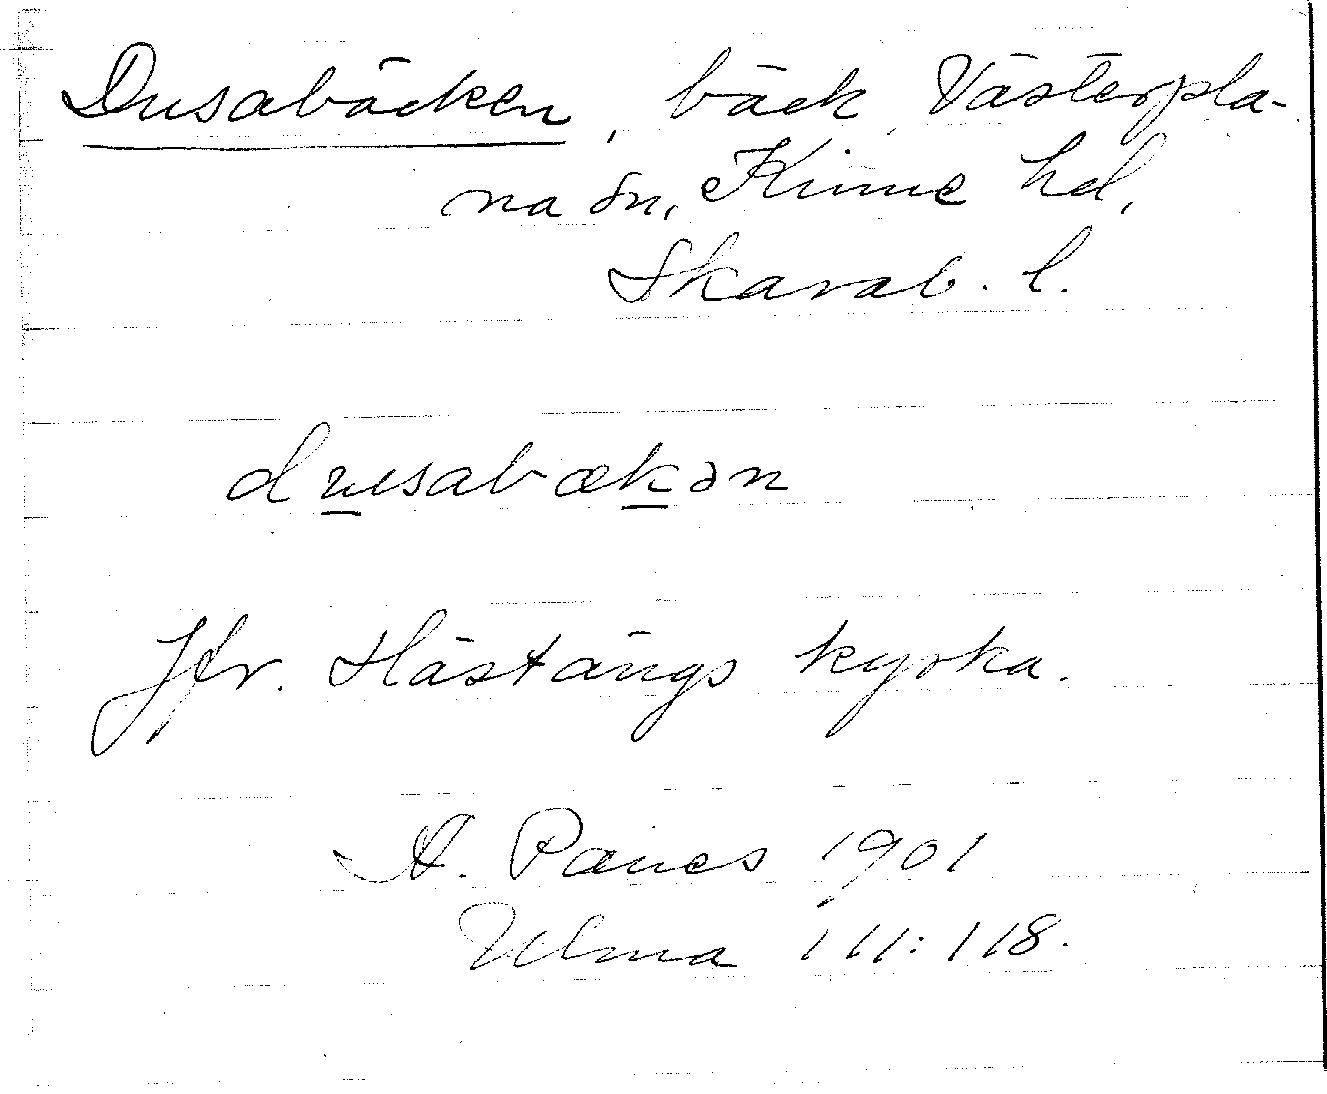 Dusabäcken, bäck, Västerpla-
na sn, Kinne hd,
Skarab. l.
dusabækən
Jfr. Hästängs kyrka.
A. Ranes 1901
Ulma 111:118.